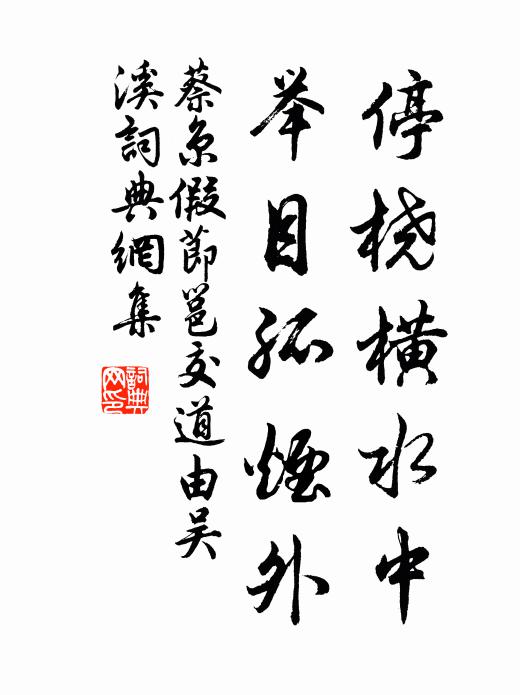 停桡横水中
举目孤煙外
蔡京假節邕交道由吴
溪詞典網集
詞典网印